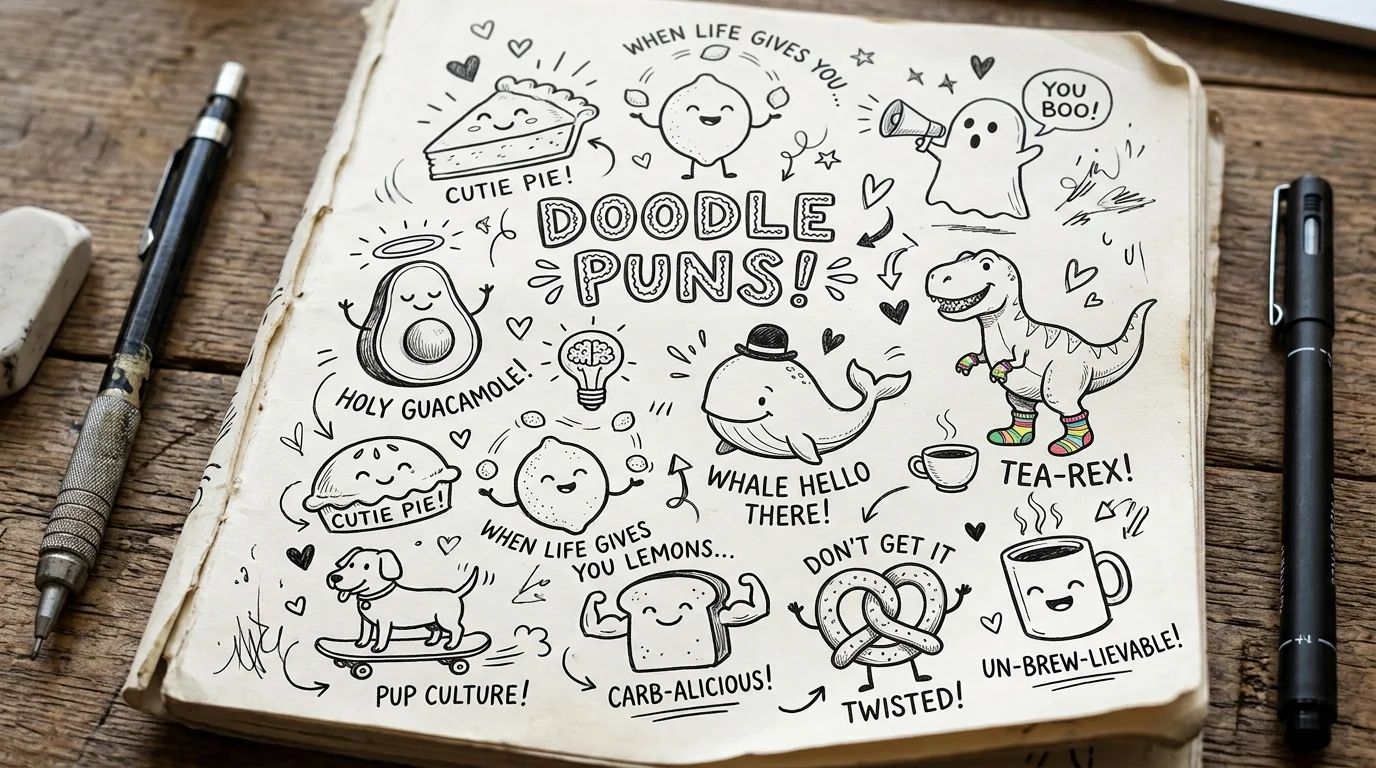 WHEN LIFE GIVES YOU...
YOU
BOO!
CUTIE PIE!
DOODLE
PUNS!
HOLY GUACAMOLE!
WHALE HELLO
THERE!
TEA-REX!
CUTIE PIE!
WHEN LIFE GIVES
YOU LEMONS...
DON'T GET IT
TWISTED!
PUP CULTURE!
CARB-ALICIOUS!
UN-BREW-LIEVABLE!